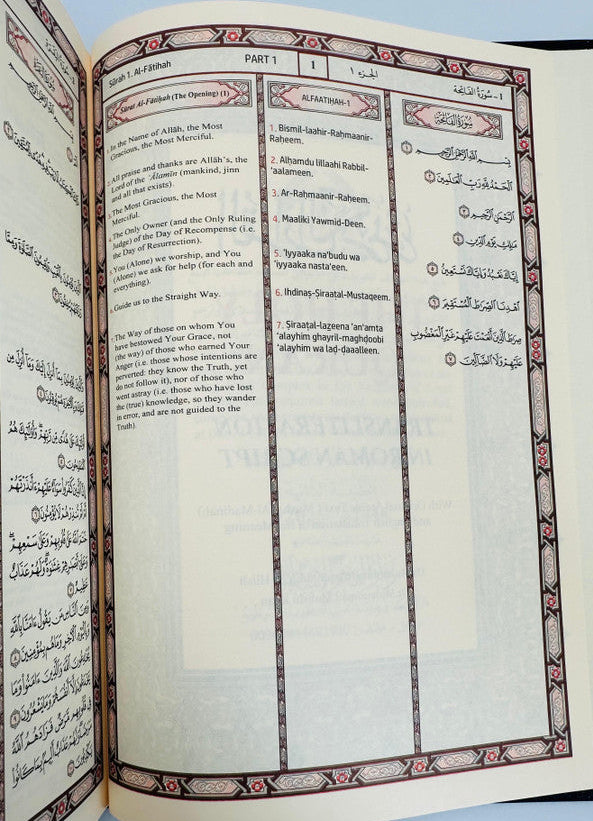 أُوْلَٰٓئِكَ عَلَىٰ هُدًى مِّن رَّبِّهِمْ وَأُوْلَٰٓئِكَ هُمُ
ٱلْمُفْلِحُونَ ٥
إِنَّ ٱلَّذِينَ كَفَرُوا۟ سَوَآءٌ عَلَيْهِمْ ءَأَنذَرْتَهُمْ
أَمْ لَمْ تُنذِرْهُمْ لَا يُؤْمِنُونَ ٦
خَتَمَ ٱللَّهُ عَلَىٰ قُلُوبِهِمْ وَعَلَىٰ سَمْعِهِمْ
وَعَلَىٰٓ أَبْصَٰرِهِمْ غِشَٰوَةٌ وَلَهُمْ عَذَابٌ
عَظِيمٌ ٧
وَمِنَ ٱلنَّاسِ مَن يَقُولُ ءَامَنَّا بِٱللَّهِ
وَبِٱلْيَوْمِ ٱلْءَاخِرِ وَمَا هُم بِمُؤْمِنِينَ ٨
يُخَٰدِعُونَ ٱللَّهَ وَٱلَّذِينَ ءَامَنُوا۟ وَمَا
يَخْدَعُونَ إِلَّآ أَنفُسَهُمْ وَمَا يَشْعُرُونَ ٩
فِى قُلُوبِهِم مَّرَضٌ فَزَادَهُمُ ٱللَّهُ
مَرَضًا وَلَهُمْ عَذَابٌ أَلِيمٌۢ بِمَا كَانُوا۟
يَكْذِبُونَ ١٠
Sûrah 1. Al-Fâtihah
PART 1
1
الجزء ١
١ - سُورَةُ الفَاتِحَة
Sûrat Al-Fâtiḥah (The Opening) (1)
1. In the Name of Allâh, the Most
Gracious, the Most Merciful.
2. All praise and thanks are Allâh's, the
Lord of the 'Âlamîn (mankind, jinn
and all that exists).
3. The Most Gracious, the Most
Merciful.
4. The Only Owner (and the Only Ruling
Judge) of the Day of Recompense (i.e.
the Day of Resurrection).
5. You (Alone) we worship, and You
(Alone) we ask for help (for each and
everything).
6. Guide us to the Straight Way.
7. The Way of those on whom You
have bestowed Your Grace, not
(the way) of those who earned Your
Anger (i.e. those whose intentions are
perverted: they know the Truth, yet
do not follow it), nor of those who
went astray (i.e. those who have lost
the (true) knowledge, so they wander
in error, and are not guided to the
Truth).
ALFAATIḤAH-1
1. Bismil-laahir-Raḥmaanir-
Raḥeem.
2. Alḥamdu lillaahi Rabbil-
'aalameen.
3. Ar-Raḥmaanir-Raḥeem.
4. Maaliki Yawmid-Deen.
5. 'Iyyaaka na'budu wa
'iyyaaka nasta'een.
6. Ihdinaṣ-Ṣiraaṭal-Mustaqeem.
7. Ṣiraaṭal-lazeena 'an'amta
'alayhim ghayril-maghḍoobi
'alayhim wa laḍ-ḍaaalleen.
سُورَةُ الفَاتِحَةِ
بِسْمِ ٱللَّهِ ٱلرَّحْمَٰنِ ٱلرَّحِيمِ ١
ٱلْحَمْدُ لِلَّهِ رَبِّ ٱلْعَٰلَمِينَ ٢
ٱلرَّحْمَٰنِ ٱلرَّحِيمِ ٣
مَٰلِكِ يَوْمِ ٱلدِّينِ ٤
إِيَّاكَ نَعْبُدُ وَإِيَّاكَ نَسْتَعِينُ ٥
ٱهْدِنَا ٱلصِّرَٰطَ ٱلْمُسْتَقِيمَ ٦
صِرَٰطَ ٱلَّذِينَ أَنْعَمْتَ عَلَيْهِمْ غَيْرِ ٱلْمَغْضُوبِ
عَلَيْهِمْ وَلَا ٱلضَّآلِّينَ ٧